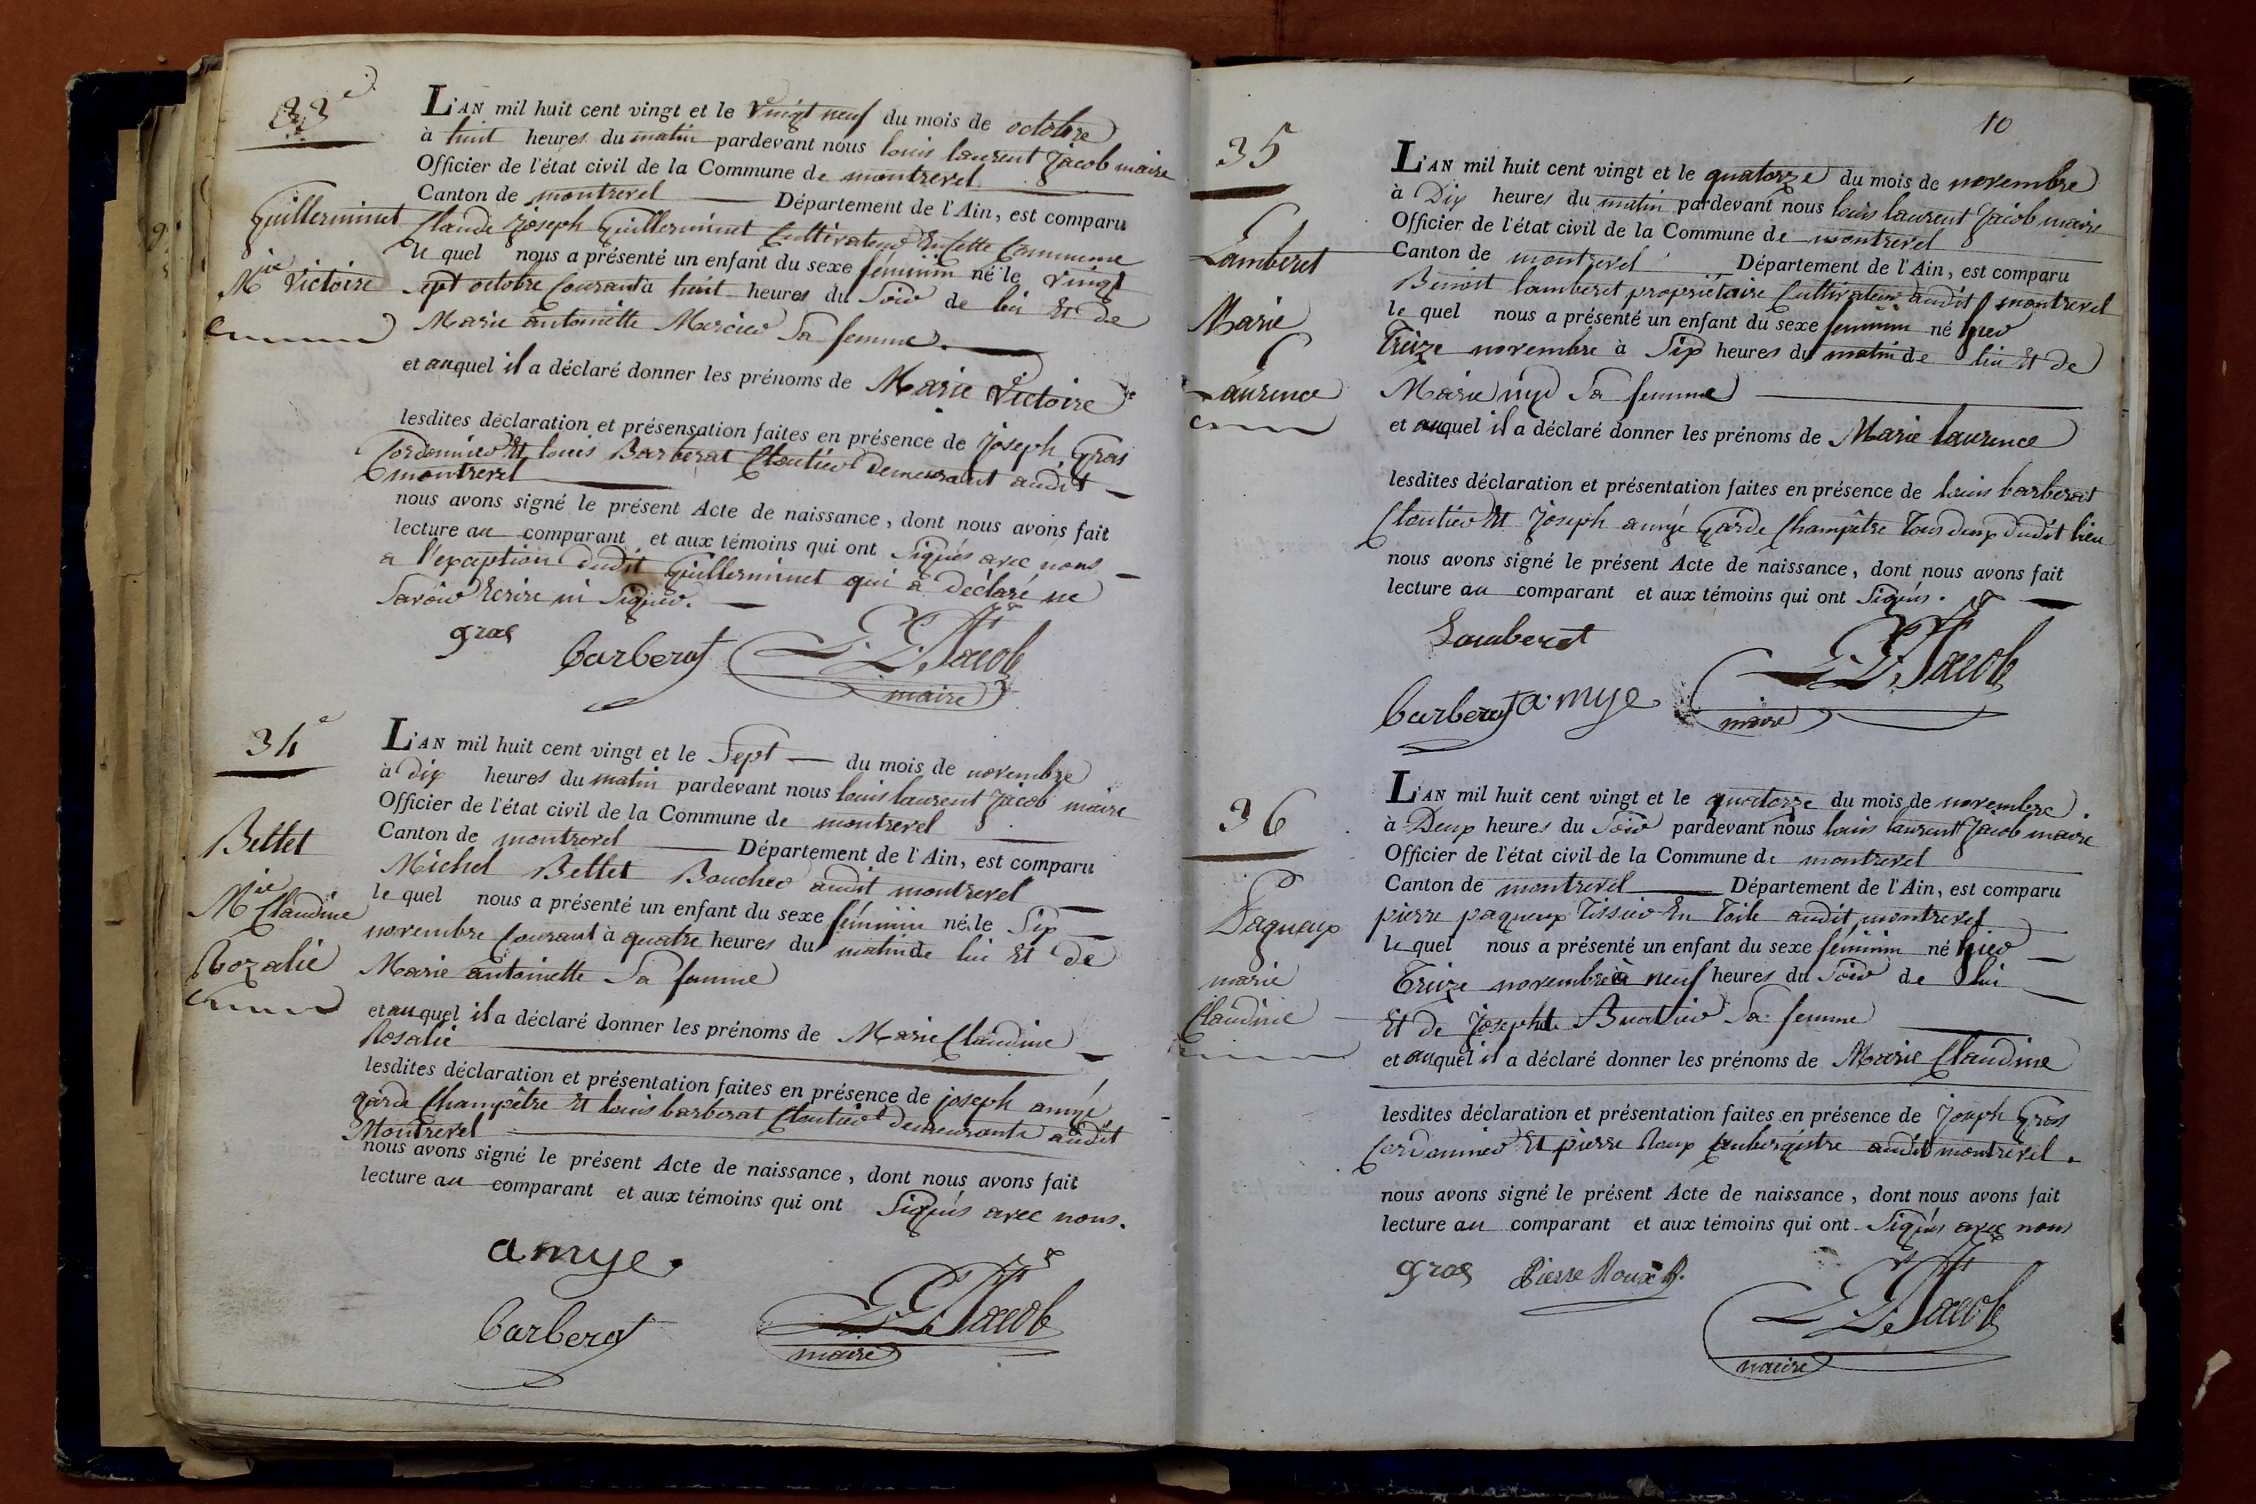 33e
Guillerminet
Mie Victoire
L'AN mil huit cent vingt et le vingt neuf du mois de octobre
à huit heures du matin pardevant nous louis laurent Jacob maire
Officier de l'état civil de la Commune de montrevel
Canton de montrevel Département de l'Ain, est comparu
Claude Joseph Guillerminet Cultivateur En Cette Commune
le quel nous a présenté un enfant du sexe féminin né le vingt
sept octobre Courant à huit heures du Soir de lui Et de
Marie antoinette Mercier Sa femme.
et auquel il a déclaré donner les prénoms de Marie Victoire
lesdites déclaration et présensation faites en présence de Joseph Gras
Cordonnier Et louis Barberat Cloutier demeurant audit
montrevel
nous avons signé le présent Acte de naissance, dont nous avons fait
lecture au comparant et aux témoins qui ont Signés avec nous
a l'exception dudit Guillerminet qui a déclaré ne
Savoir Ecrire ni Signer.
gras barberat L. L. Jacob
maire
34e
Bellet
Mie Claudine
Rozalie
L'AN mil huit cent vingt et le Sept du mois de novembre
à dix heures du matin pardevant nous louis laurent Jacob maire
Officier de l'état civil de la Commune de montrevel
Canton de montrevel Département de l'Ain, est comparu
Michel Bellet Boucher audit montrevel
le quel nous a présenté un enfant du sexe féminin né le Six
novembre Courant à quatre heures du matin de lui Et de
Marie antoinette Sa femme
et auquel il a déclaré donner les prénoms de Marie Claudine
Rosalie
lesdites déclaration et présentation faites en présence de joseph amyé
garde Champêtre Et louis barberat Cloutier demeurants audit
Montrevel
nous avons signé le présent Acte de naissance, dont nous avons fait
lecture au comparant et aux témoins qui ont Signés avec nous.
amye.
barberat L. L. Jacob
maire
10
35
Lamberet
Marie
Laurence
L'AN mil huit cent vingt et le quatorze du mois de novembre
à Dix heures du matin pardevant nous louis laurent Jacob maire
Officier de l'état civil de la Commune de montrevel
Canton de montrevel Département de l'Ain, est comparu
Benoit lamberet propriétaire Cultivateur audit montrevel
le quel nous a présenté un enfant du sexe feminin né hier
Treize novembre à Six heures du matin de lui Et de
Marie Sa femme
et auquel il a déclaré donner les prénoms de Marie laurence
lesdites déclaration et présentation faites en présence de louis barberat
Cloutier Et Joseph amyé Garde Champêtre Tous deux dudit lieu
nous avons signé le présent Acte de naissance, dont nous avons fait
lecture au comparant et aux témoins qui ont Signés.
Lamberet
barberat amye L. L. Jacob
maire
36
Paqueux
marie
Claudine
L'AN mil huit cent vingt et le quatorze du mois de novembre
à Deux heures du Soir pardevant nous louis laurent Jacob maire
Officier de l'état civil de la Commune de montrevel
Canton de montrevel Département de l'Ain, est comparu
pierre paqueux Tissier En Toile audit montrevel
le quel nous a présenté un enfant du sexe féminin né hier
Treize novembre à neuf heures du Soir de lui
Et de Josephte Sa femme
et auquel il a déclaré donner les prénoms de Marie Claudine
lesdites déclaration et présentation faites en présence de Joseph Gras
Cordonnier Et pierre Roux aubergistre audit montrevel.
nous avons signé le présent Acte de naissance, dont nous avons fait
lecture au comparant et aux témoins qui ont Signés avec nous
gras Pierre Roux L. L. Jacob
maire